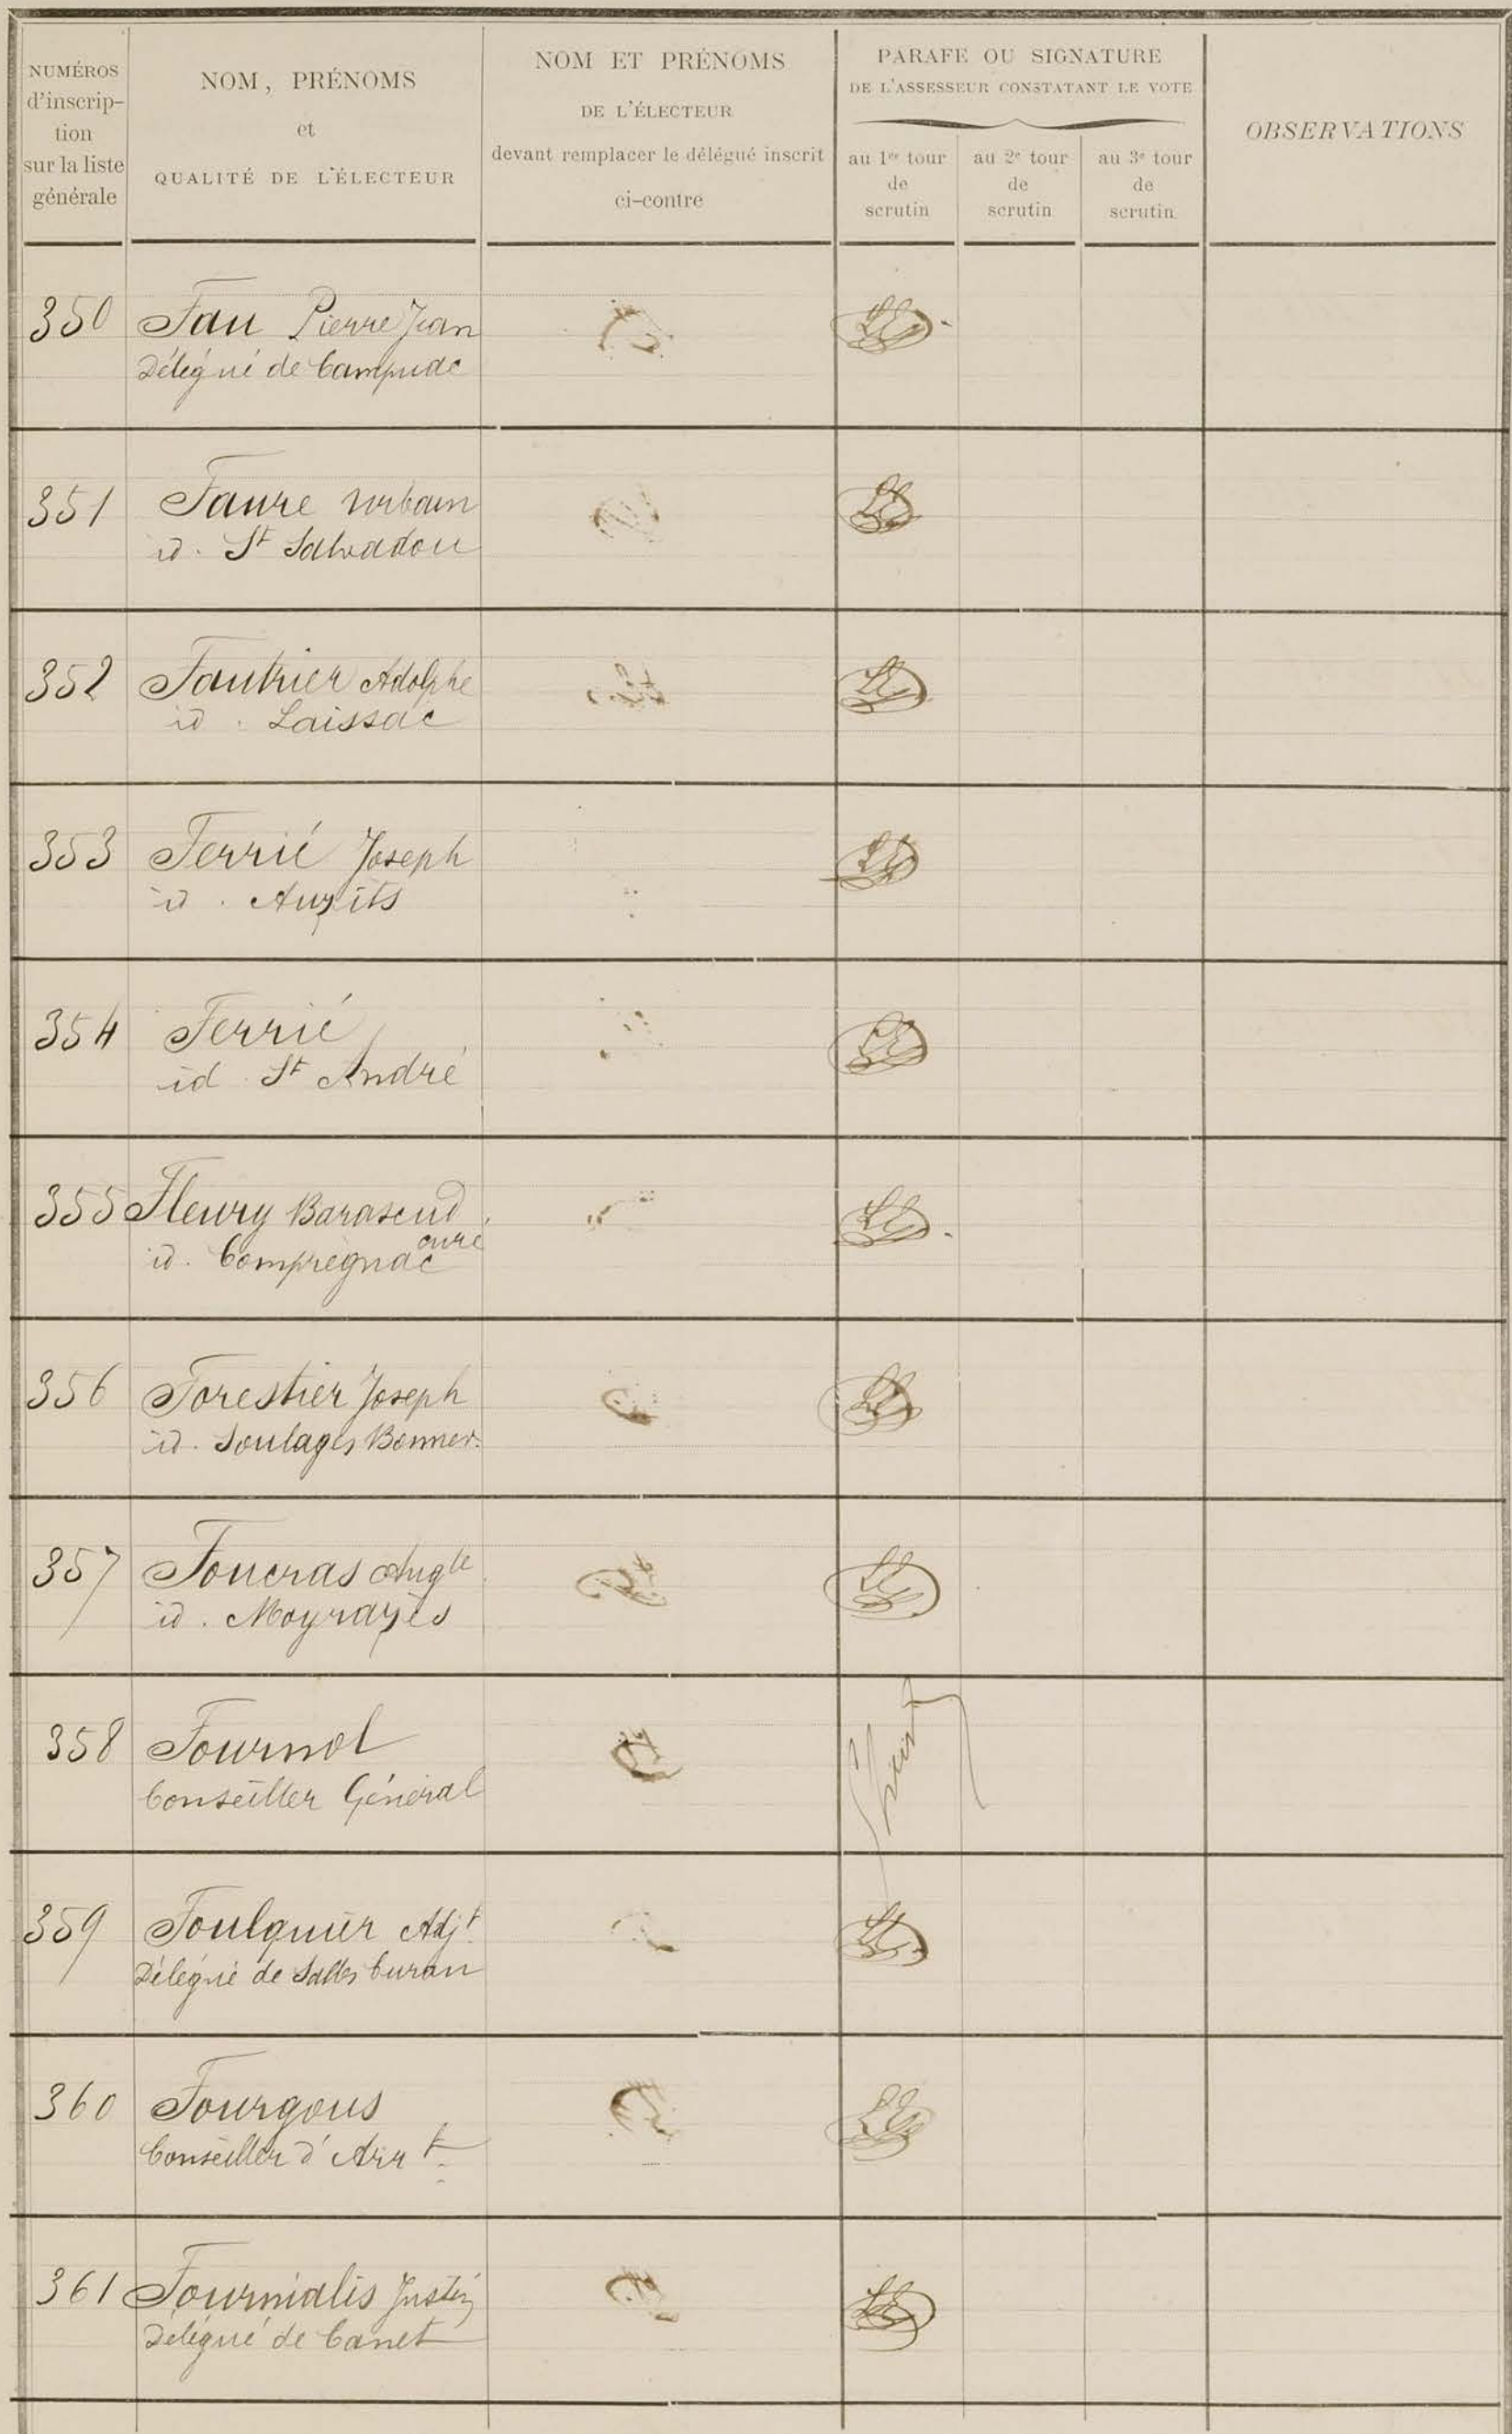 NUMÉROS
d'inscrip-
tion
sur la liste
générale
NOM, PRÉNOMS
et
QUALITÉ DE L'ÉLECTEUR
NOM ET PRÉNOMS
DE L'ÉLECTEUR
devant remplacer le délégué inscrit
ci-contre
PARAFE OU SIGNATURE
DE L'ASSESSEUR CONSTATANT LE VOTE
au 1er tour
de
scrutin
au 2e tour
de
scrutin
au 3e tour
de
scrutin
OBSERVATIONS
350 Fau Pierre Jean
Délégué de Campuac
351 Faure Urbain
id. St Salvadou
352 Fautrier Adolphe
id. Laissac
353 Ferrié Joseph
id. Auzits
354 Ferrié
id St André
355 Fleury Barascud
curé
id. Comprégnac
356 Forestier Joseph
id. Soulages Bonnev.
357 Foucras Augte
id. Moyrazès
358 Fournol
Conseiller Général
359 Foulquier Adjt
Délégué de Salles Curan
360 Fourgous
Conseiller d'Arrt
361 Fournialis Justin
Délégué de Canet